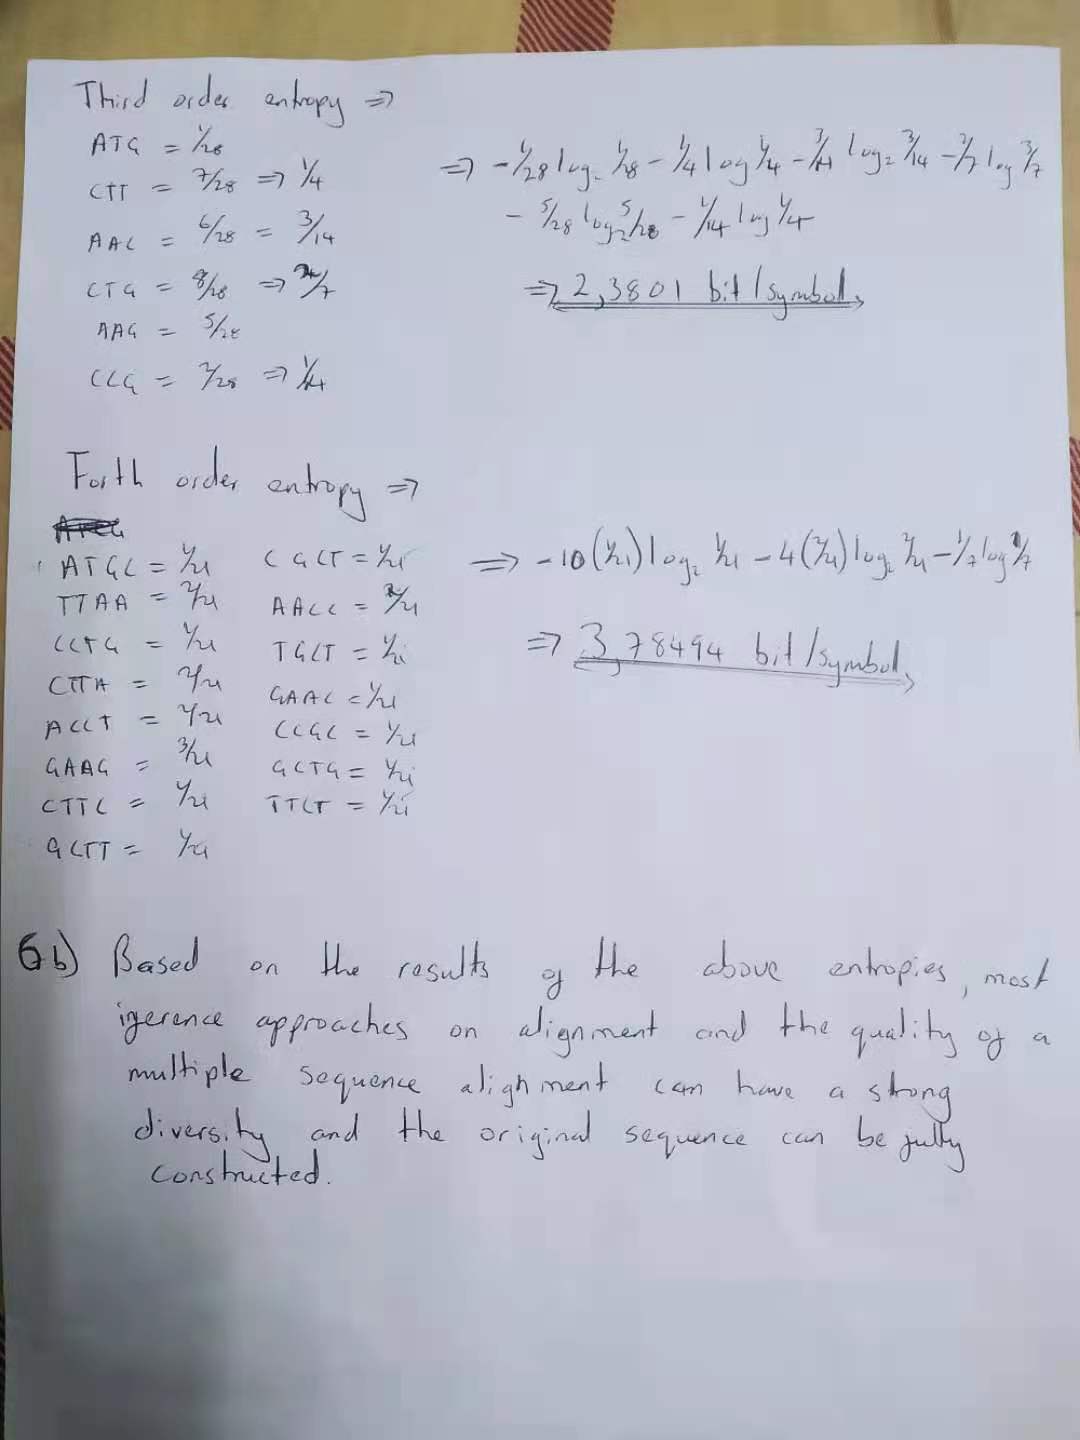 Third order entropy ⇒
ATG = 1/28
CTT = 7/28 ⇒ 1/4
AAC = 6/28 = 3/14
CTG = 8/28 ⇒ 2/7
AAG = 5/28
CCG = 2/28 ⇒ 1/14
⇒ -1/28 log₂ 1/28 - 1/4 log 1/4 - 3/14 log₂ 3/14 - 2/7 log 2/7
- 5/28 log₂ 5/28 - 1/14 log 1/4
⇒ 2,3801 bit/symbol,
Forth order entropy ⇒
ATGC = 1/21
TTAA = 2/21
CCTG = 1/21
CTTA = 2/21
ACCT = 2/21
GAAG = 3/21
CTTC = 1/21
GCTT = 1/21
CGCT = 1/21
AACC = 2/21
TGCT = 1/21
GAAC = 1/21
CCGC = 1/21
GCTG = 1/21
TTCT = 1/21
⇒ -10(1/21) log₂ 1/21 - 4(2/21) log₂ 2/21 - 1/7 log 1/7
⇒ 3,78494 bit/symbol,
6b) Based on the results of the above entropies, most
iference approaches on alignment and the quality of a
multiple sequence alighment can have a strong
diversity and the original sequence can be fully
constructed.